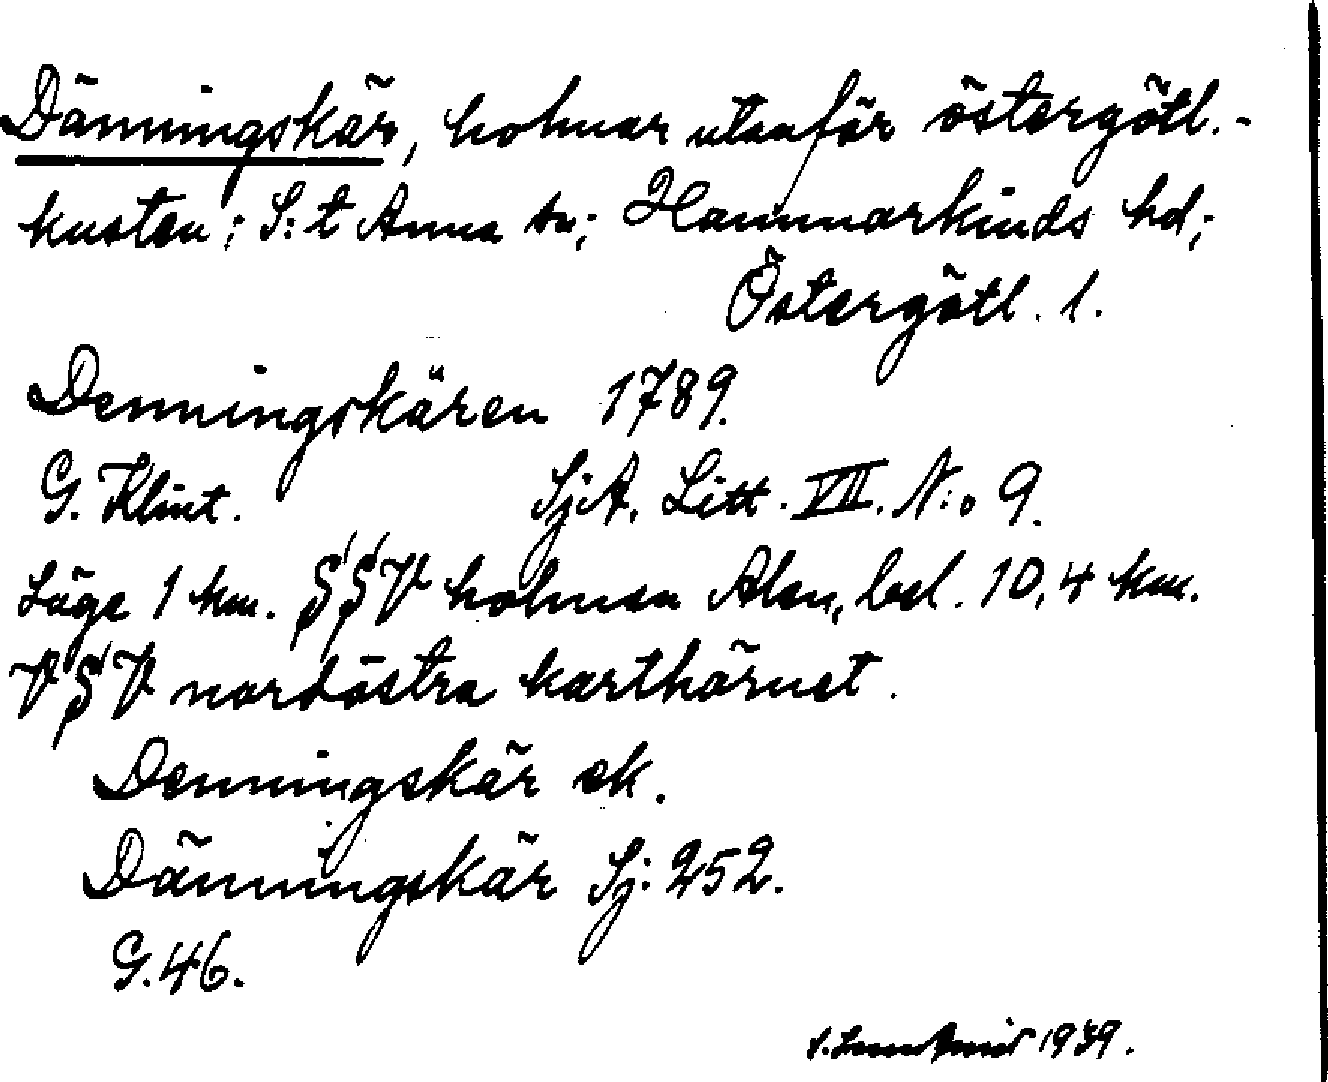 Dänningskär, holmar utanför östergötl.-
kusten; S:t Anna sn; Hammarkinds hd;
Östergötl. l.
Denningskären 1789.
G. Klint. SjA. Litt. VIII. N:o 9.
Läge 1 km. S S V holmen Alen, bel. 10,4 km.
V S V nordöstra karthörnet.
Denningskär ek.
Dänningskär Sj. 252.
G. 46.
1939.